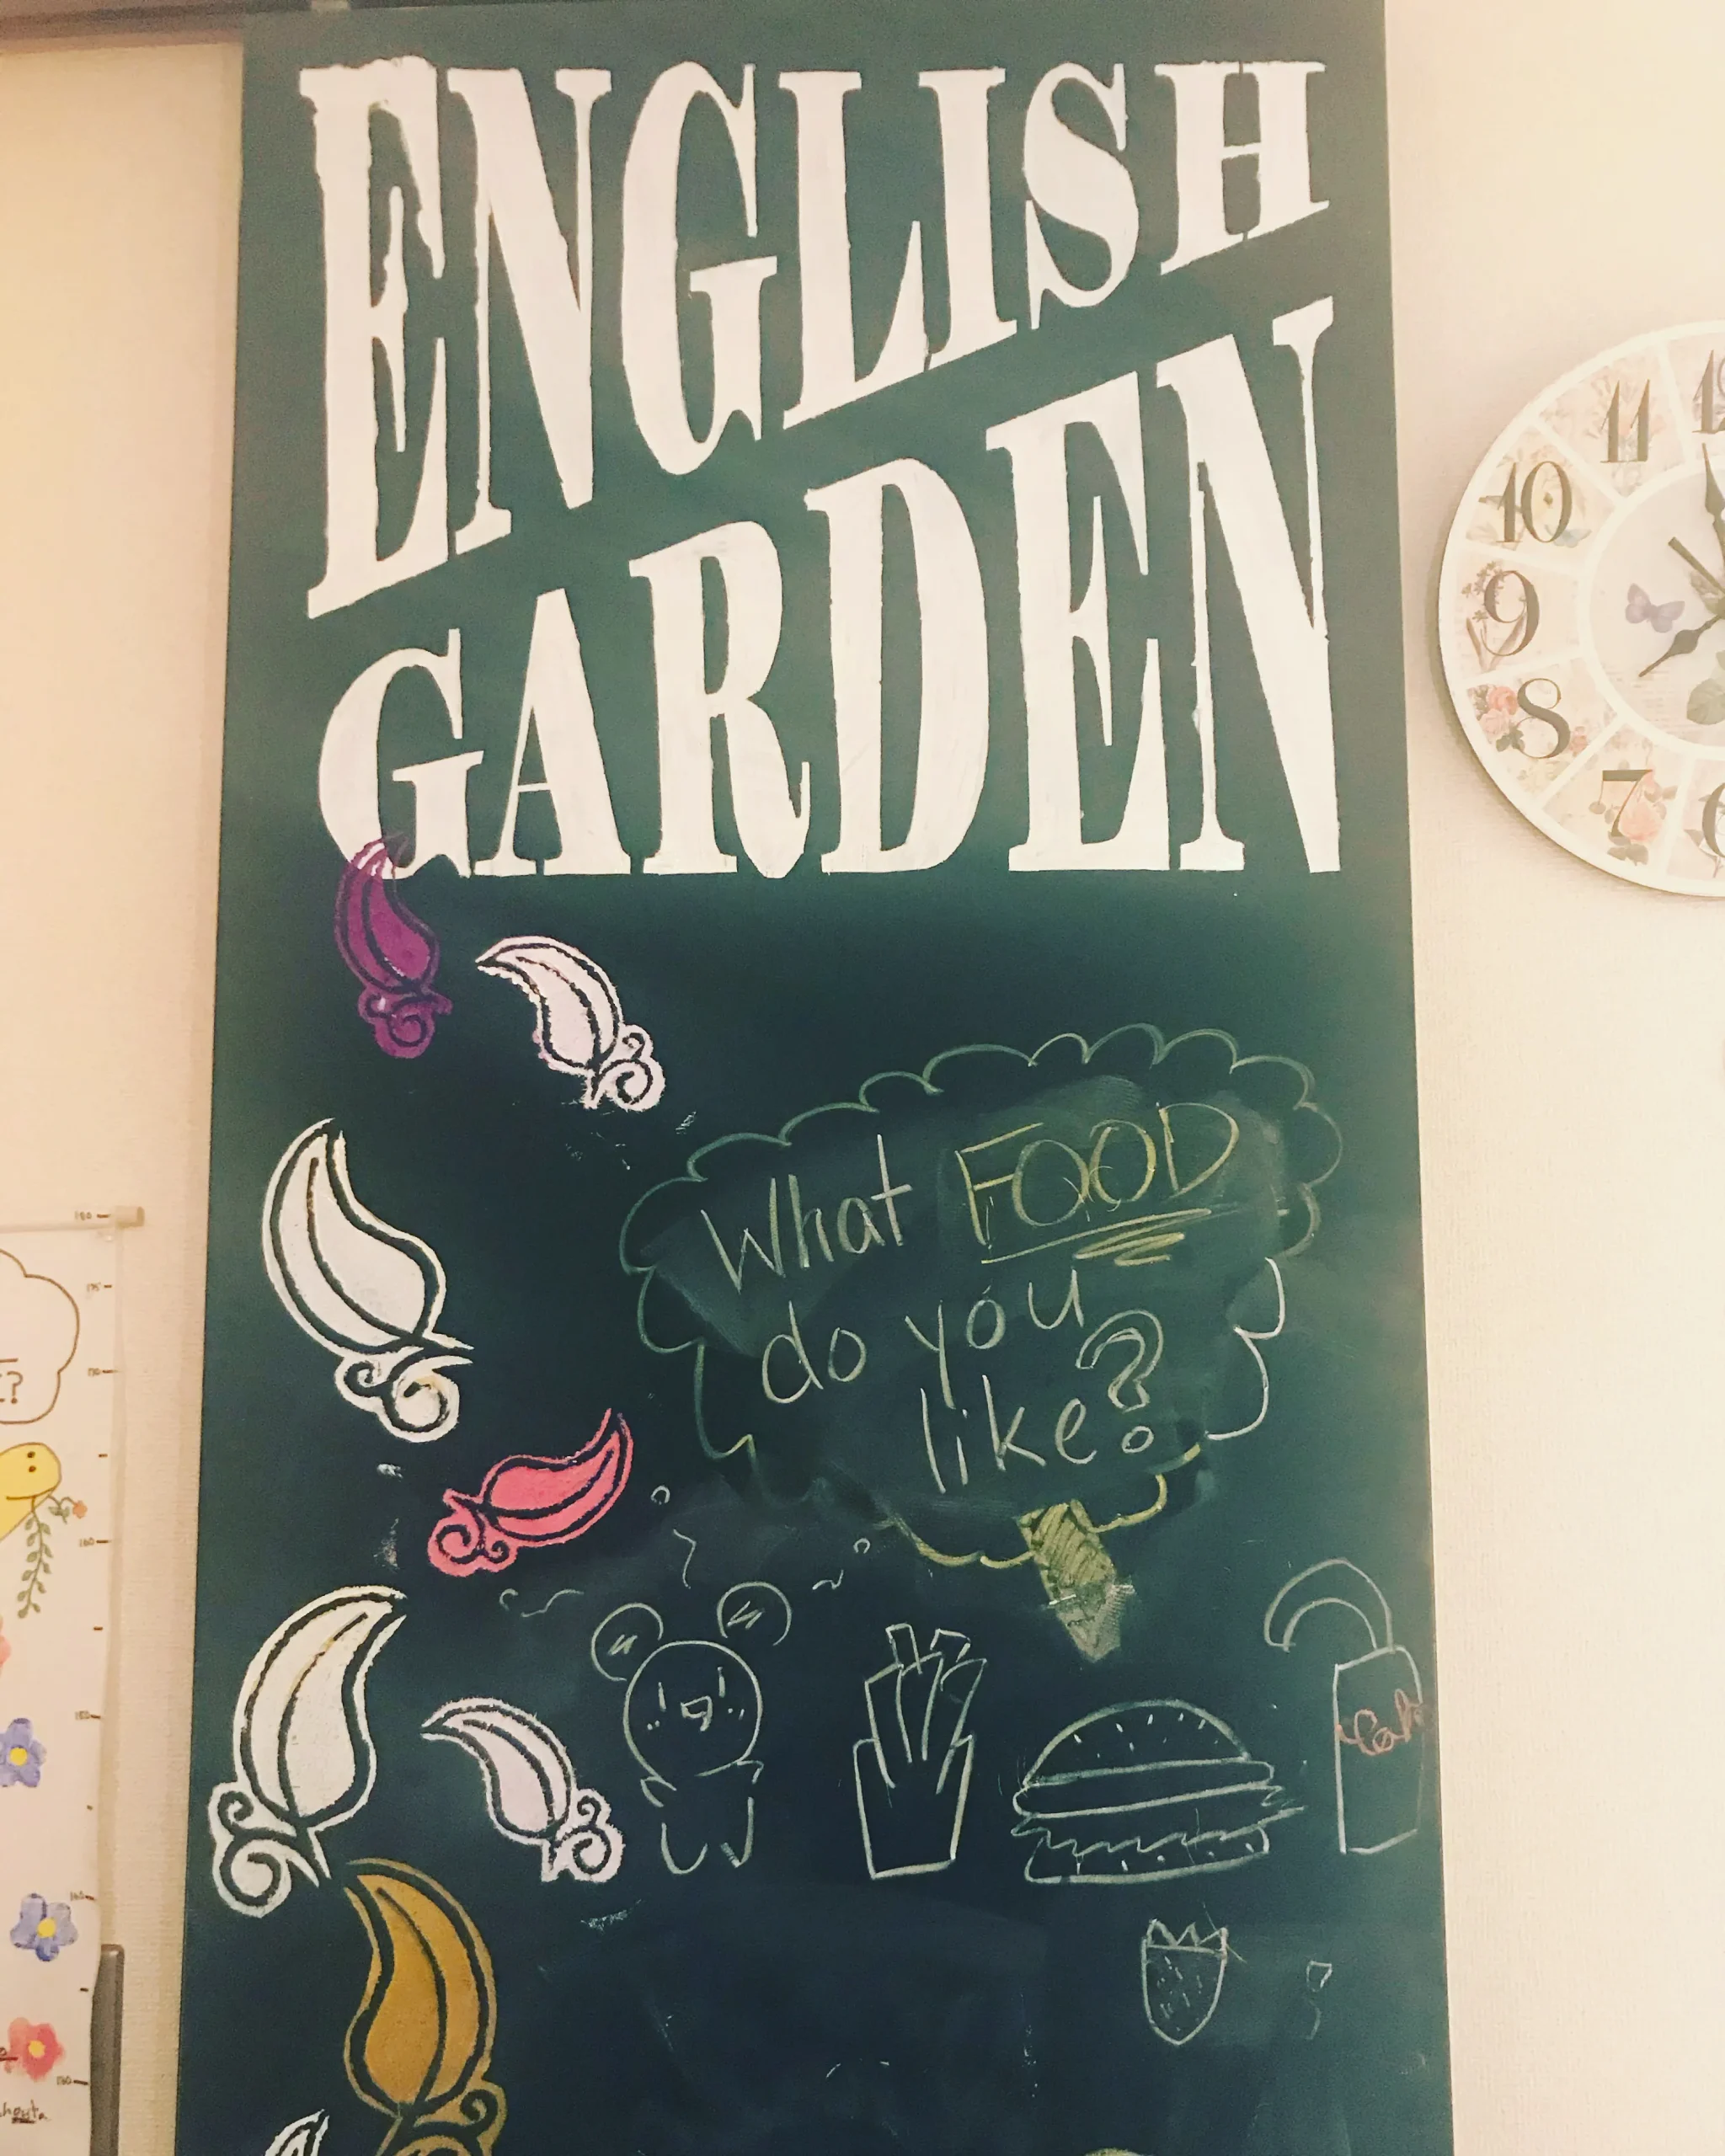 ENGLISH
GARDEN
What FOOD
do you
like?
11
10
9
8
7